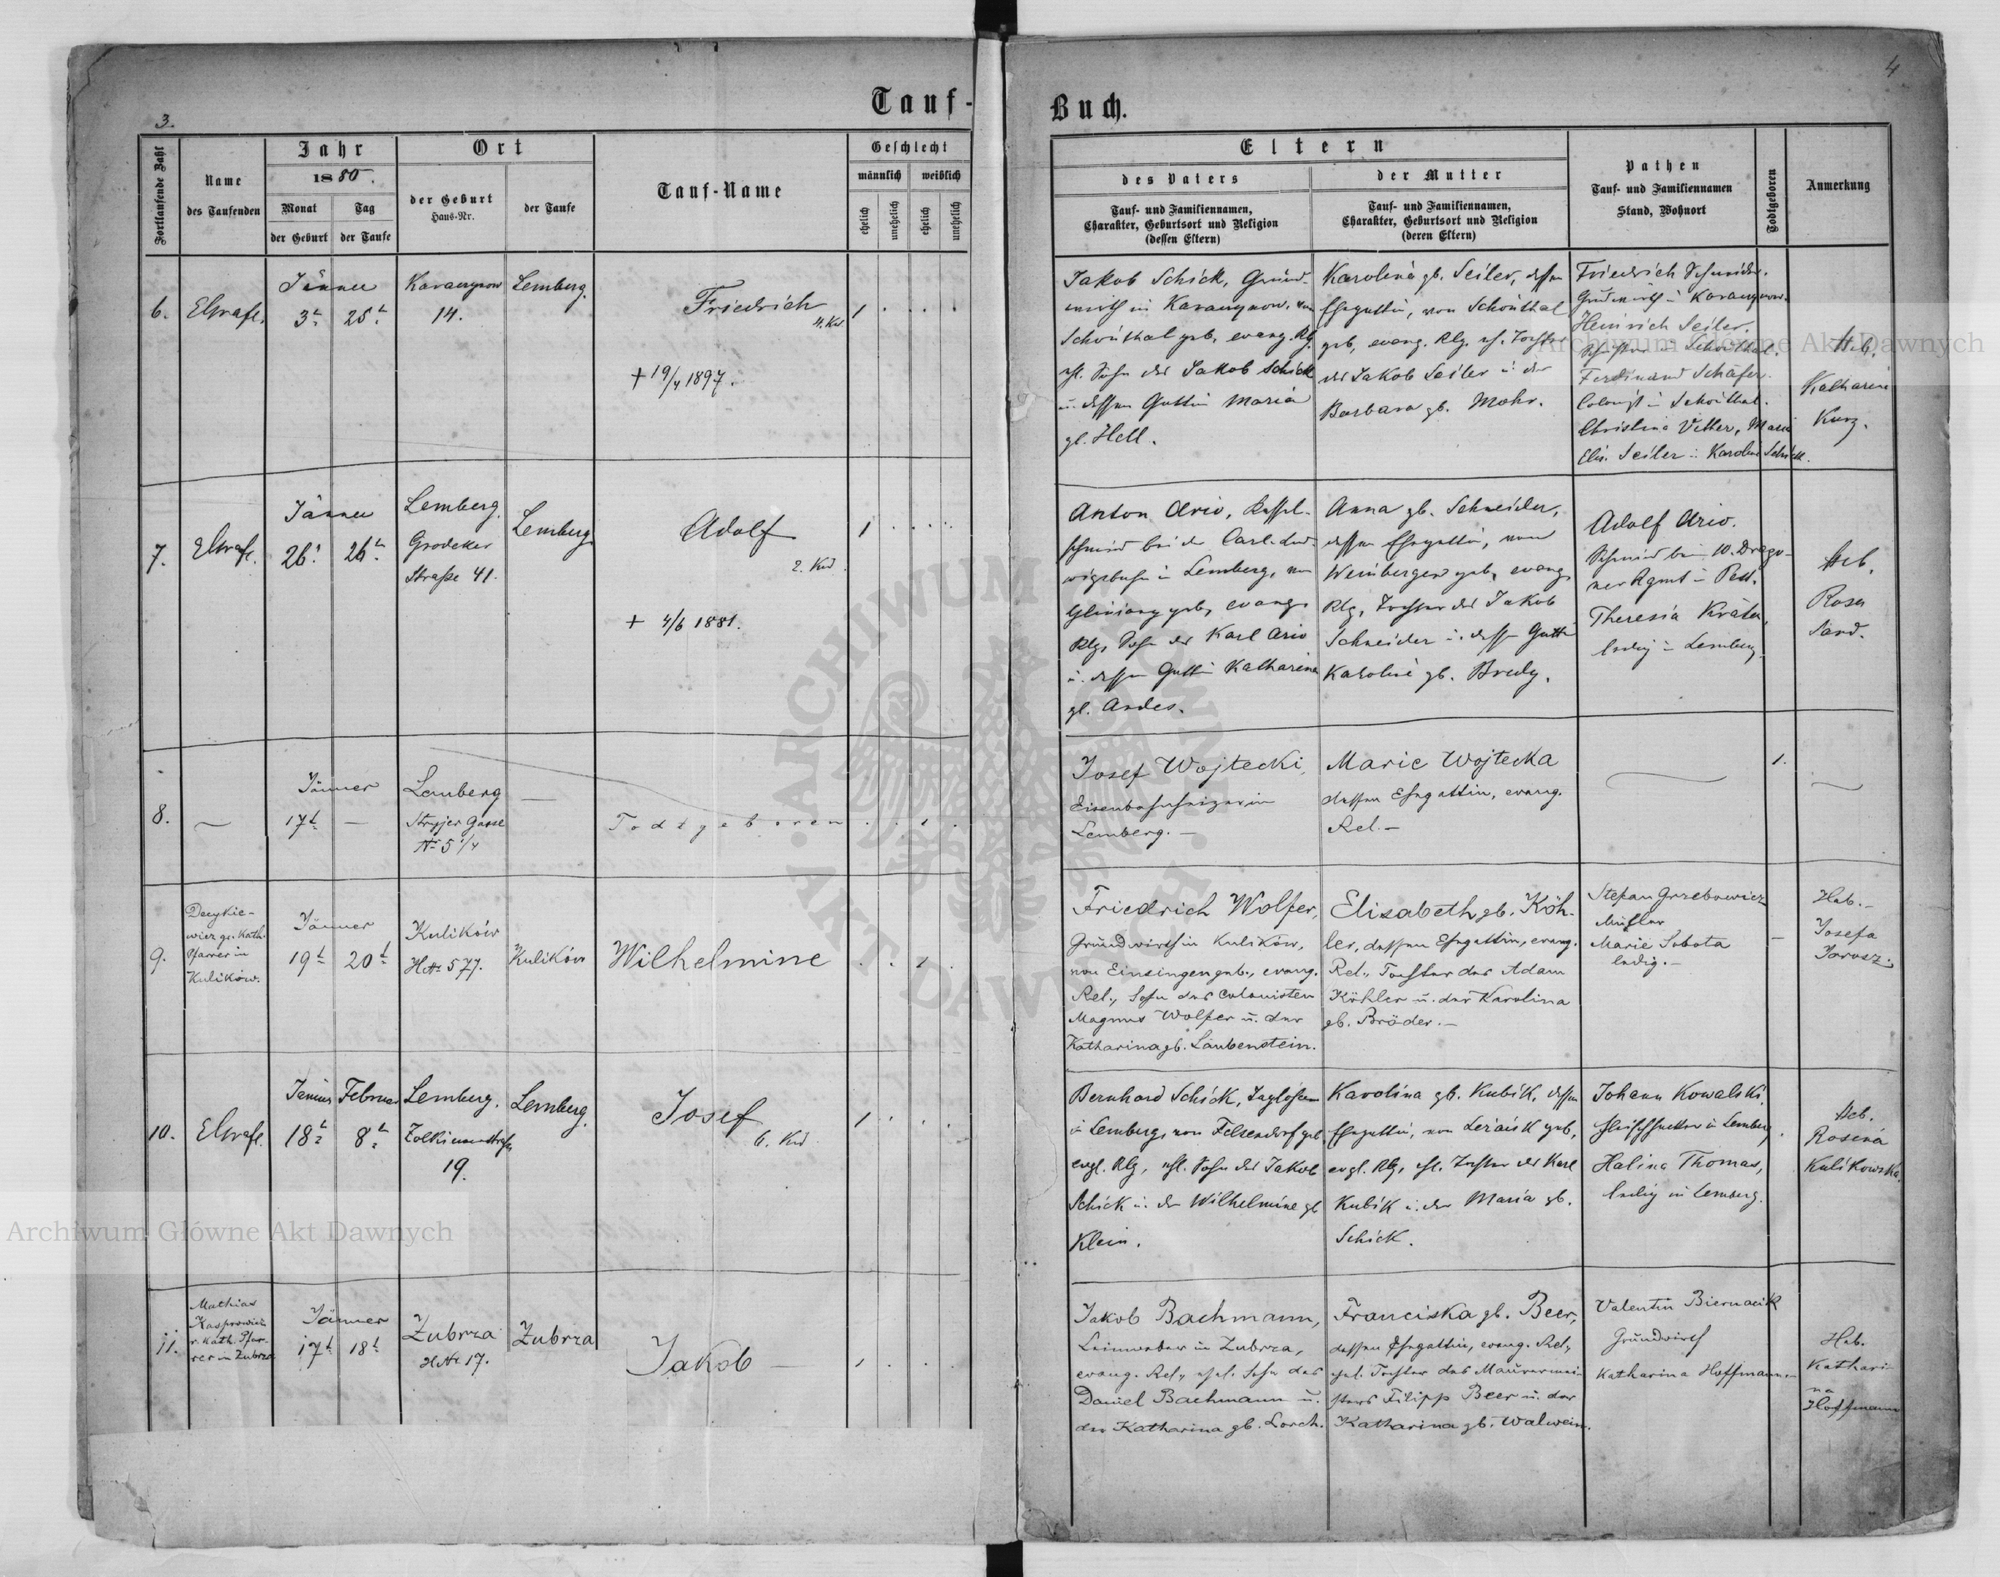 3.
4
Tauf-
Buch.
Fortlaufende Zahl
Name
des Taufenden
Jahr
1880.
Monat
der Geburt
Tag
der Taufe
Ort
der Geburt
Haus-Nr.
der Taufe
Tauf-Name
Geschlecht
männlich
weiblich
ehelich
unehelich
ehelich
unehelich
Eltern
des Vaters
Tauf- und Familiennamen,
Charakter, Geburtsort und Religion
(dessen Eltern)
der Mutter
Tauf- und Familiennamen,
Charakter, Geburtsort und Religion
(deren Eltern)
Pathen
Tauf- und Familiennamen
Stand, Wohnort
Todtgeboren
Anmerkung
6.
Jänner
3t
25t
14.
Lemberg.
Friedrich
4. Kd
+ 19/4 1897.
1
Jakob Schick, Grund-
wirth in
Schönthal geb, evang. Rlg.
ehl. Sohn des Jakob Schick
u. dessen Gattin Maria
gb. Hell.
Karolina gb. Seiler, dessen
Ehegattin, von Schönthal
geb, evang. Rlg. eh. Tochter
des Jakob Seiler u. der
Barbara gb. Mohr.
Friedrich Schneider,
Grundwirth in
Heinrich Seiler,
in Schönthal.
Ferdinand Schäfer
Colonist in Schönthal.
Christina Vetter, Maria
Elis. Seiler u. Karolina Schick.
Heb.
Katharina
Kurz.
7.
Jänner
26t
26t
Lemberg.
Grodeker
Straße 41.
Lemberg
Adolf
2. Kd.
+ 4/6 1881.
1
Anton Ario, Kessel-
schmied bei der Carl-Lud-
wigsbahn in Lemberg, von
Gliniany geb, evang.
Rlg, Sohn des Karl Ario
u. dessen Gattin Katharina
gb. Andes.
Anna gb. Schneider,
dessen Ehegattin, von
Weinbergen geb, evang.
Rlg, Tochter des Jakob
Schneider u. dessen Gattin
Karoline gb. Bredy.
Adolf Ario.
Schmied beim 10. Drago-
ner Rgmt in Pest.
Theresia
ledig in Lemberg.
Heb.
Rosa
Sand.
8.
—
Jänner
17t —
Lemberg
Stryjer Gasse
Nr 5 1/4
—
Todtgeboren
1
Josef Wojtecki,
Eisenbahnheizer in
Lemberg. —
Marie Wojtecka
dessen Ehegattin, evang.
Rel. —
—
1.
—
9.
Decykie-
wicz gr. kath.
Pfarrer in
Kulików.
Jänner
19t
20t
Kulików
HNr 577.
Kulików
Wilhelmine
1
Friedrich Wolfer,
Grundwirth in Kulików,
von Einsingen geb., evang.
Rel., Sohn des Colonisten
Magnus Wolfer u. der
Katharina gb. Laubenstein.
Elisabeth gb. Köh-
ler, dessen Ehegattin, evang.
Rel., Tochter des Adam
Köhler u. der Karolina
gb. Bröder. —
Stefan Grzebowicz
Müller
Marie Sobota
ledig. —
—
Heb. —
Josefa
Jarosz.
10.
Jänner
Februar
18t
8t
Lemberg.
19.
Lemberg.
Josef
6. Kd
1
Bernhard Schick, Taglöhner
in Lemberg, von Felsendorf geb
evgl. Rlg, ehl. Sohn des Jakob
Schick u. der Wilhelmine gb
Klein.
Karolina gb. Kubik, dessen
Ehegattin, von Leżaisk geb,
evgl. Rlg, ehl. Tochter des Karl
Kubik u. der Maria gb.
Schick.
Johann Kowalski,
in Lemberg.
Halina Thomas,
ledig in Lemberg.
Heb.
Rosina
Kulikowska.
11.
Mathias
Kasprowicz
r. kath. Pfar-
rer in Zubrza
Jänner
17t
18t
Zubrza
HNr 17.
Zubrza
Jakob —
1
Jakob Bachmann,
Leinweber in Zubrza,
evang. Rel., ehel. Sohn des
Daniel Bachmann u.
der Katharina gb. Lorch.
Franciska gb. Beer,
dessen Ehegattin, evang. Rel.,
ehel. Tochter des Maurermei-
sters Filipp Beer u. der
Katharina gb. Walwein.
Valentin Biernacik
Grundwirth
Katharina Hoffmann. —
Heb.
Kathari-
na
Hoffmann
Archiwum Główne Akt Dawnych
Archiwum Główne Akt Dawnych
ARCHIWUM GŁÓWNE AKT DAWNYCH